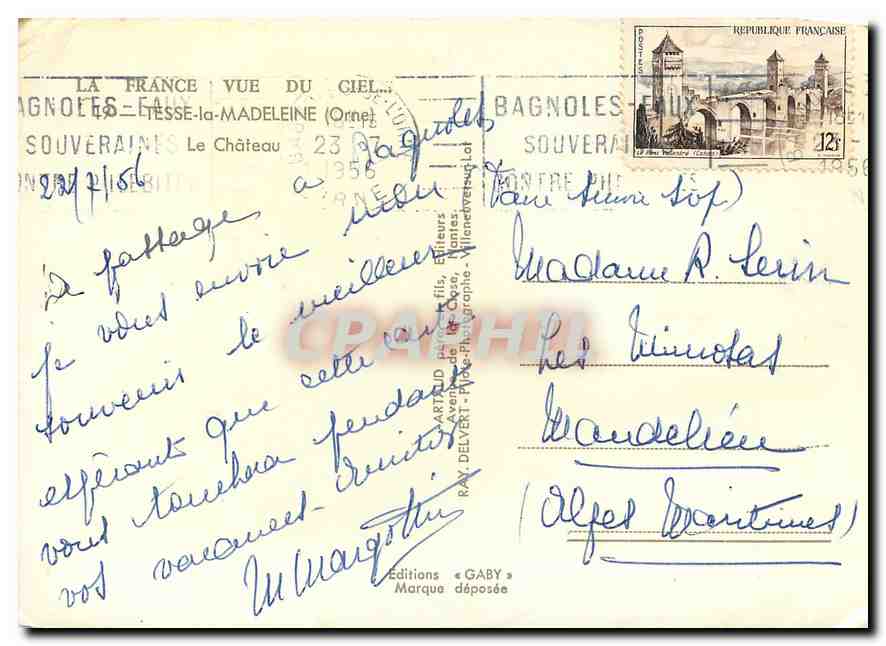 LA FRANCE VUE DU CIEL...
19 - TESSÉ-la-MADELEINE (Orne)
Le Château
BAGNOLES-EAUX
SOUVERAINES
CONTRE PHLÉBITES
23-7
1956
ORNE
22/7/56
De passage a Bagnoles
je vous envoie mon
souvenir le meilleur
espérant que cette carte
vous touchera pendant
vos vacances - Amitiés
M Margottin
ARTAUD père et fils, Editeurs
Avenue de la Close, Nantes
RAY. DELVERT - Pilote-Photographe - Villeneuve-sur-Lot
Editions « GABY »
Marque déposée
REPUBLIQUE FRANÇAISE
POSTES
Le Pont Valentré (Cahors)
12F
BAGNOLES-EAUX
SOUVERAINES
CONTRE PHLÉBITES
1956
(faire suivre svp)
Madame R. Serin
Les Mimosas
Mandelieu
(Alpes Maritimes)
CPAPHIL